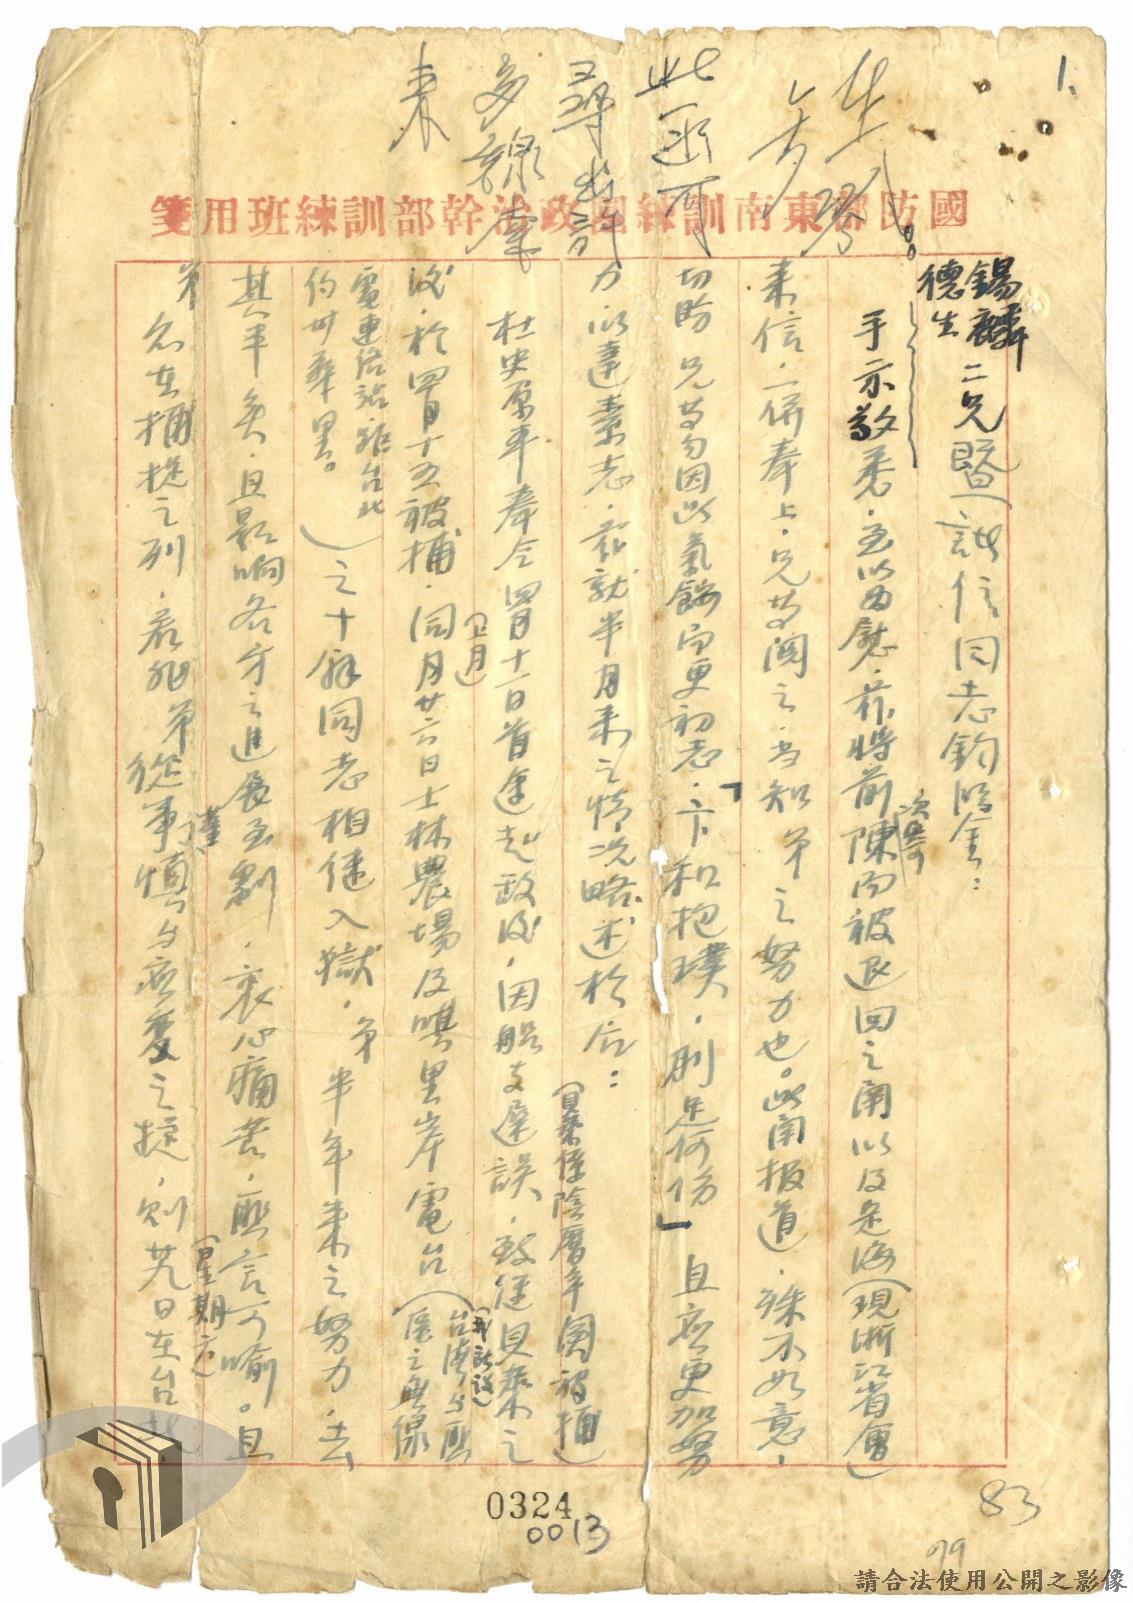 1、
此函可
尋出許
多線索
來
國防部東南訓練團政治幹部訓練班用箋
錫麟
德生
二兄暨諸信同志鈞鑒:
手示敬悉,至以為慰,茲將前次寄陳而被退回之函以及定海(現浙江省會)
來信,一併奉上,兄等閱之,當知弟之努力也。此函報道,殊不如意,
切盼兄等勿因此氣餒而更初志,「卞和抱璞,刖足何傷」且應更加努
力,以達素志,茲就半月來之情況略述於后:
杜央原車奉令四月十一日首途赴政後,因船支遲誤,致健貝葉之
(貝葉係陰曆年関被捕)
後,於四月十五被捕,同月廿六日士林農場及嘎里岸電台(
(卫月)
(再該設)
台灣与匪
區之無線
電連絡站,距台北
約卅華里。
)之十餘同志相繼入獄,弟半年來之努力,去
其半矣,且影响各方之進展至劇,衷心痛苦,匪言可喻。且
弟亦在捕捉之列,若非弟從事謹慎与應變之捷,則廿九日在台北
(星期六)
0324
0013
83
99
請合法使用公開之影像